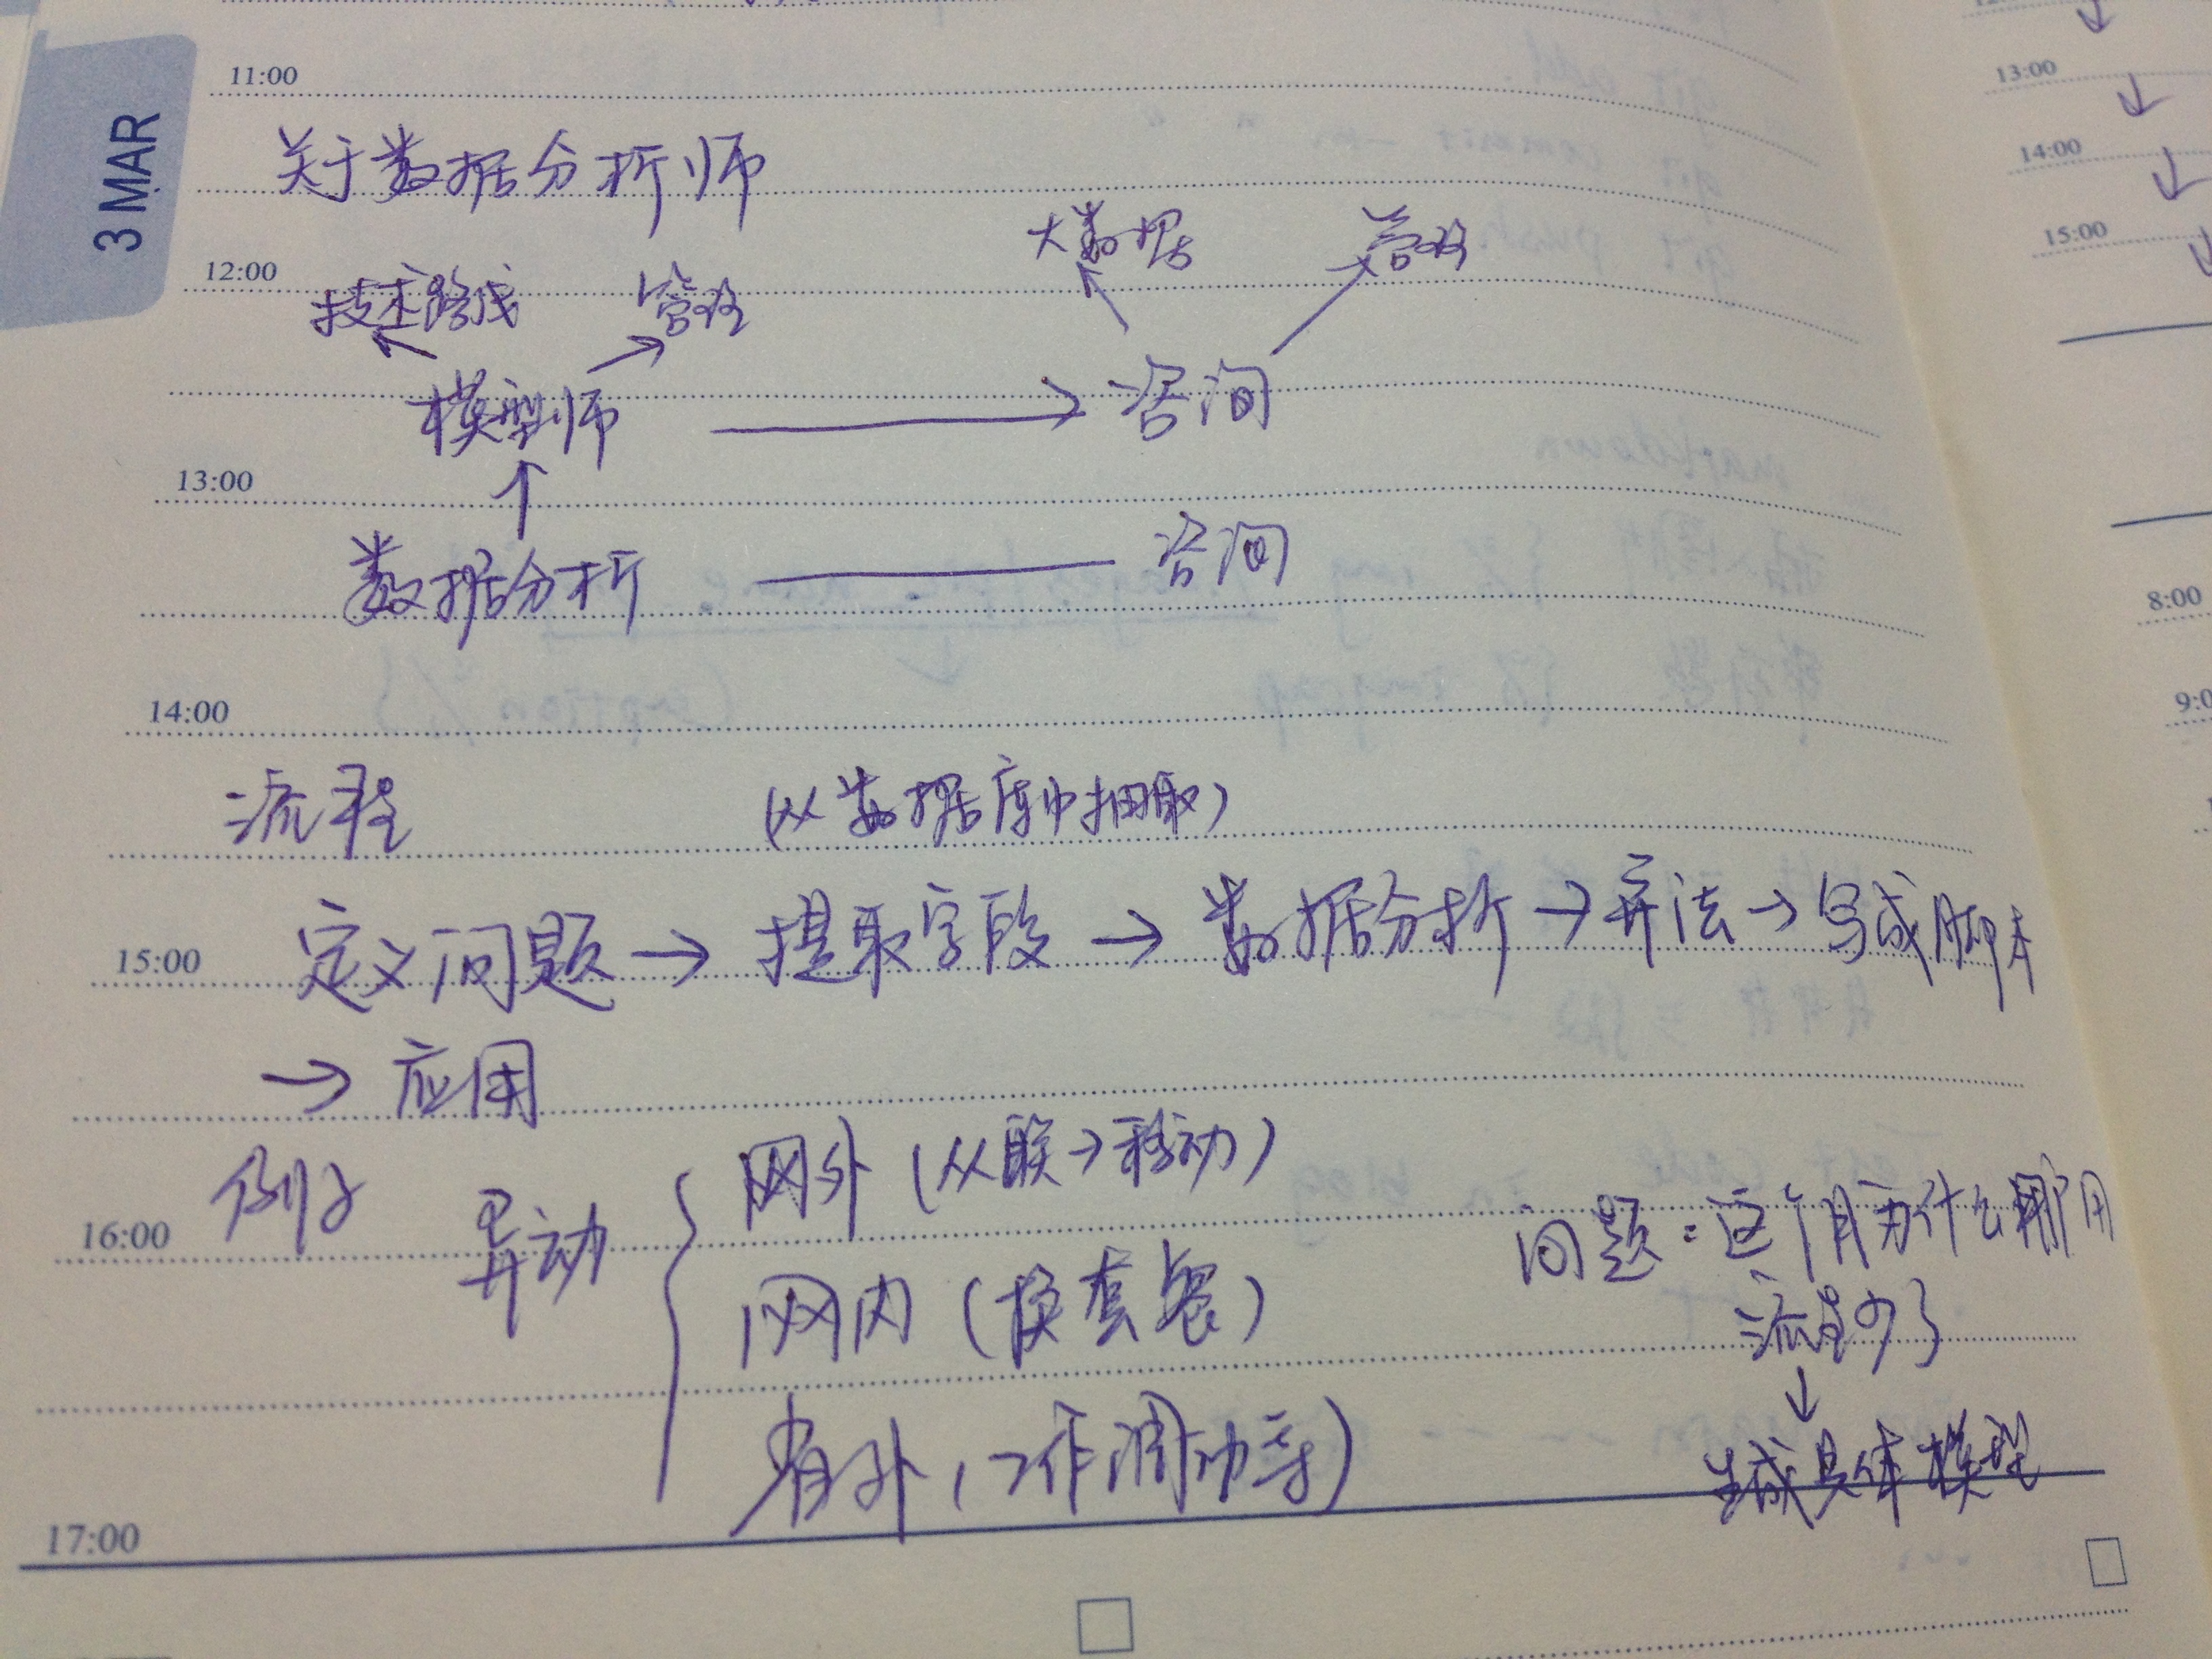 3 MAR
11:00
关于数据分析师
12:00
大数据 管理
技术路线 管理
模型师 → 咨询
↑
13:00
数据分析 — 咨询
14:00
流程 (从数据库中抽取)
15:00
定义问题 → 提取字段 → 数据分析 → 算法 → 写成脚本
→ 应用
16:00
例子 异动 { 网外 (从联→移动)
网内 (换套餐)
省外 (工作调动等)
问题:这个月为什么 用
流量少了
↓
生成具体模型
17:00
13:00
14:00
15:00
8:00